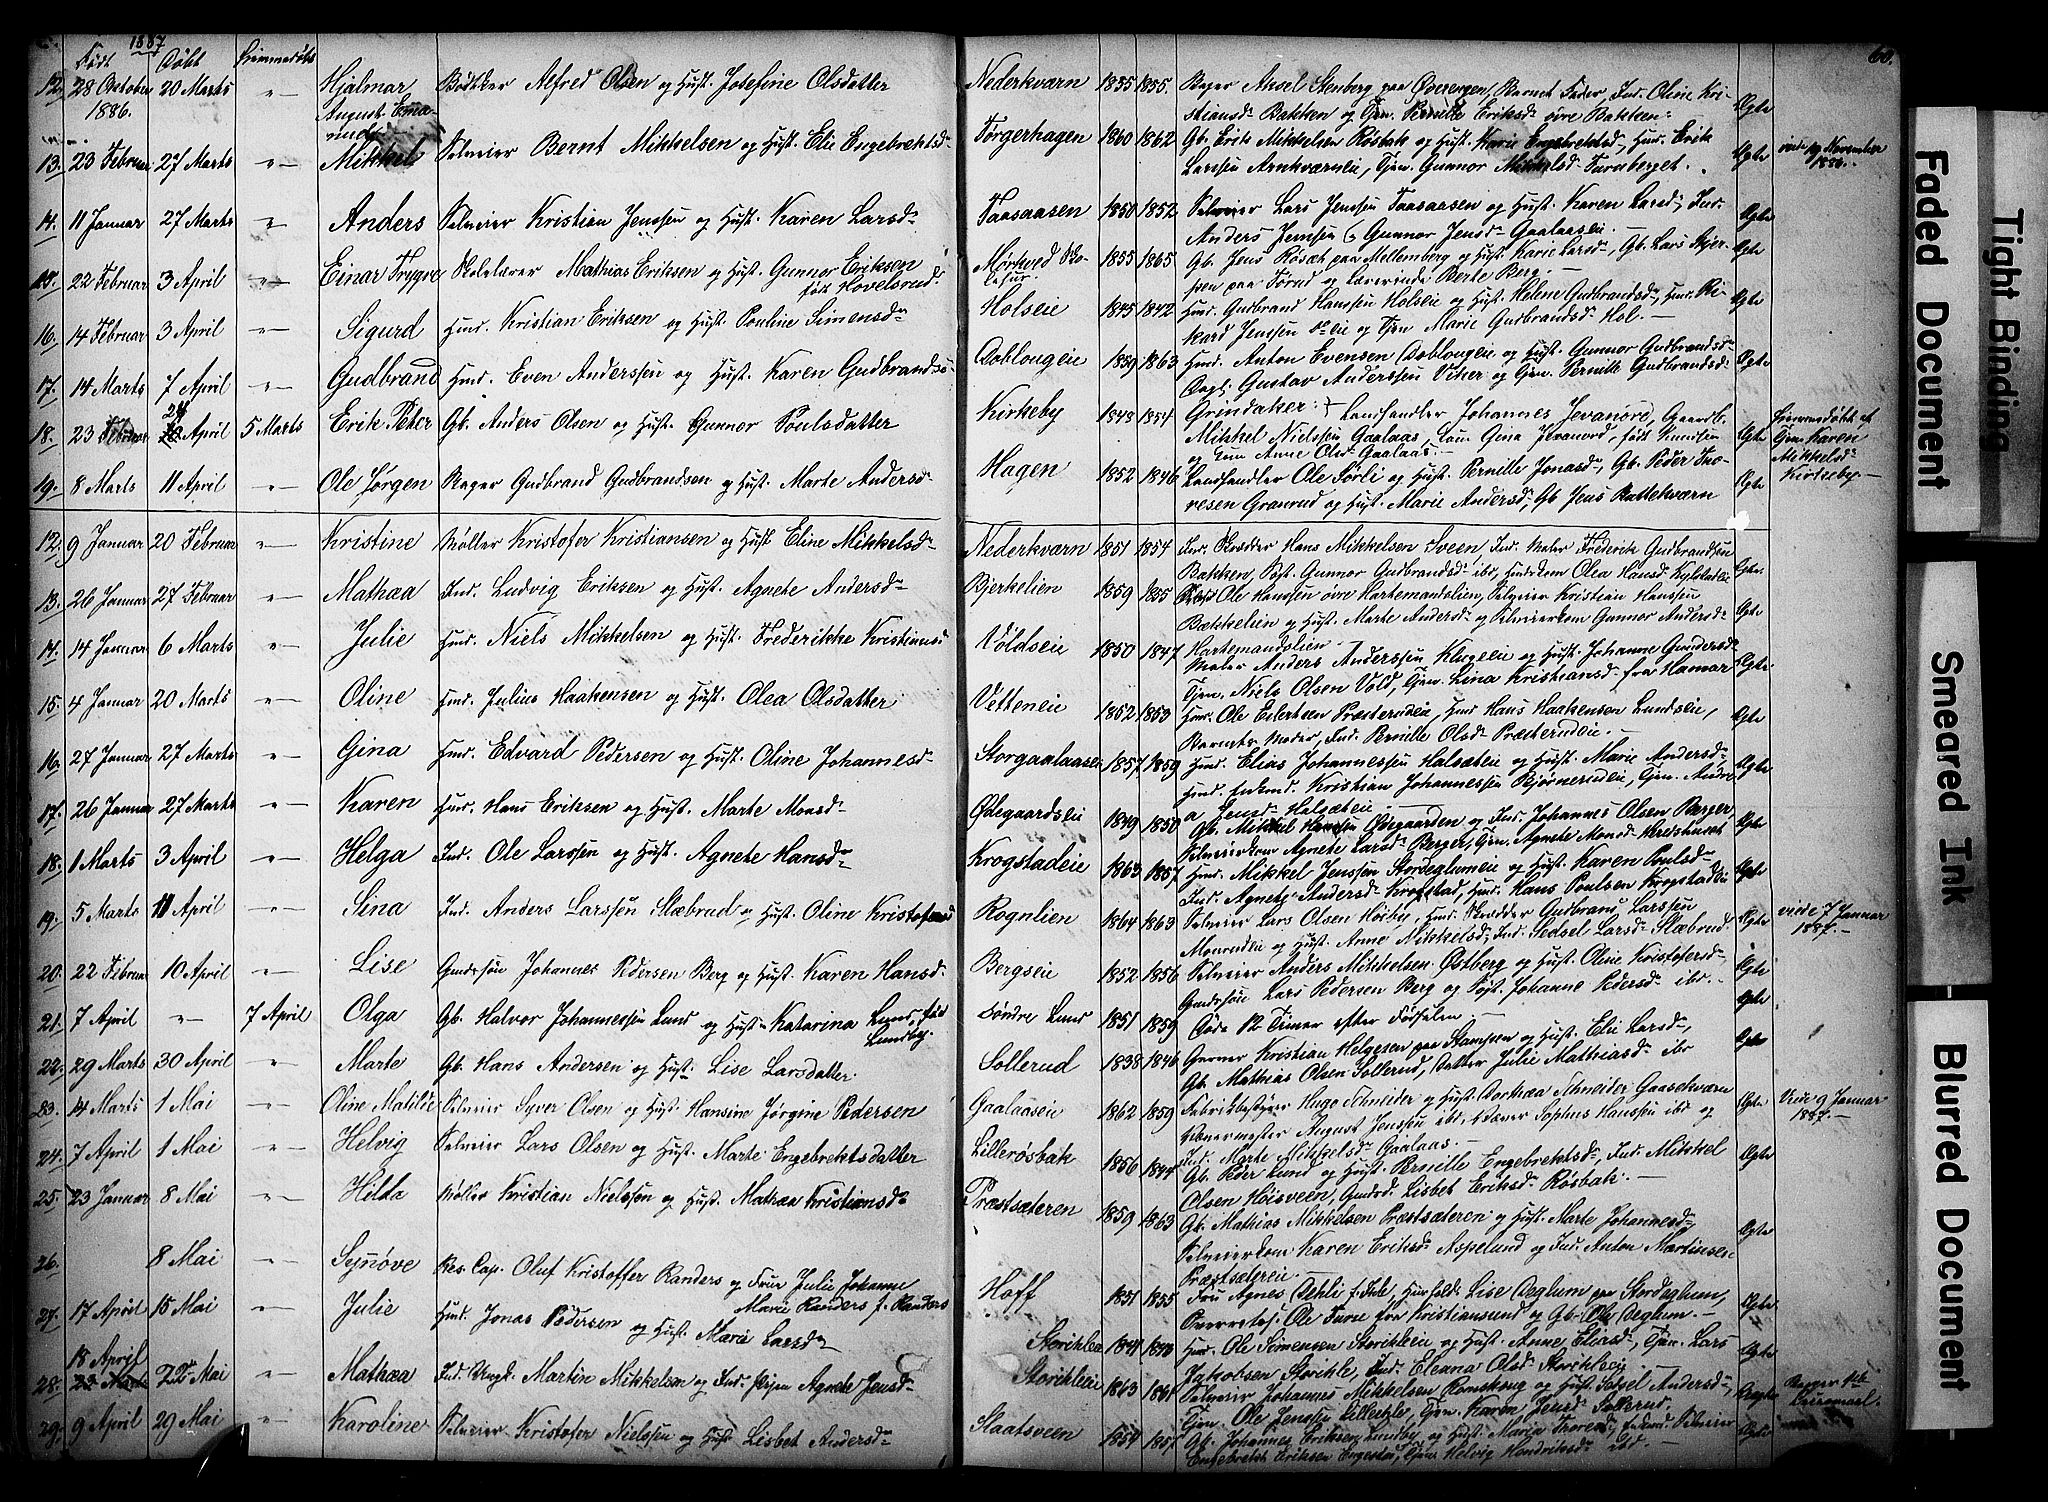 1887
Født Døbt Hjemmedøbt
60.
12. 28 October 1886. 20 Marts Hjalmar August Bødtker Alfred Olsen og Hust. Josefine Olsdatter Nederkværn 1855 1855. Bager Axel Stenberg paa Øverengen, Barnets Fader, Ind. Oline Kri-
stiansdr Bakken og Tjen. Pernille Eriksdr øvre Bakken. Ægte
13. 23 Februar 27 Marts Mikkel Selveier Bernt Mikkelsen og Hust. Elie Engebretsdr Tørgerhagen 1860 1862 Gb. Erik Mikkelsen Røsbak og Hust. Karie Engebretsdr, Hmd. Erik
Larssen, Tjen. Gunnor Mikkelsdr Ægte viede November 1886.
14. 11 Januar 27 Marts Anders Selveier Kristian Jenssen og Hust. Karen Larsdr Taasaasen 1850 1852 Selveier Lars Jenssen Taasaasen og Hust. Karen Larsdr, Ind.
Anders Jenssen & Gunnor Jensdr Gaalaaseie. Ægte
15. 22 Februar 3 April Einar Trygve Skolelærer Mathias Eriksen og Hust. Gunnor Eriksen født Hovelsrud. Mørkved Sko-
lehus 1855 1865 Gb. Jens Røsæt paa Mellemberg og Hust. Karie Larsdr, Gb. Lars Skjer-
pen paa Tørud og Lærerinde Berte Berg. Ægte
16. 14 Februar 3 April Sigurd Hmd. Kristian Eriksen og Hust. Pouline Simensdr Holseie 1845 1842 Hmd. Gudbrand Hanssen Holseie og Hust. Helene Gudbrandsdr, Hmd. Ri-
kard Jenssen og Tjen Marie Gudbrandsdr Hol. Ægte
17. 14 Marts 7 April Gudbrand Hmd. Even Anderssen og Hust. Karen Gudbrandsdr Doblougeie 1859 1863 Hmd. Anton Evensen Doblougeie og Hust. Gunnor Gudbrandsdr
Dagl. Gustav Anderssen Viker og Tjen. Pernille Gudbrandsdr Ægte
18. 23 Februar 24 April 5 Marts Erik Peter Gb. Anders Olsen og Hust. Gunnor Poulsdatter Kirkeby 1848 1854 Grindaker. Landhandler Johannes Jevanord, Gaardb.
Mikkel Nielssen Gaalaas, Kone Gina Jevanord, født Knudsen
og Kone Anne Olsdr Gaalaas. Ægte Hjemmedøbt af Tjen. Karen Mikkelsdr Kirkeby.
19. 8 Marts 11 April Ole Jørgen Bager Gudbrand Gudbrandsen og Hust. Marte Andersdr Hagen 1852 1846 Landhandler Ole Sørli og Hust. Pernille Jonasdr, Gb. Peder Tho-
resen Granrud og Hust. Marie Andersdr, Gb Jens Battekværn Ægte
12. 9 Januar 20 Februar Kristine Møller Kristofer Kristiansen og Hust. Eline Mikkelsdr Nederkværn 1851 1854 Ind. Skrædder Hans Mikkelsen Sveen, Ind. Maler Frederik Gudbrandsen
Bakken, Gunnor Gudbrandsdr ibr, Hmdskone Olea Hansdr Ægte
13. 26 Januar 27 Februar Mathea Ind. Ludvig Eriksen og Hust. Agnete Andersdr Bjerkelien 1859 1855 Ole Hanssen øvre Hartemandslien, Selveier Kristian Hanssen
Bækkelien og Hust. Marte Andersdr og Selveierkone Gunnor Andersdr
Hartemandslien. Ægte
14. 14 Januar 6 Marts Julie Hmd. Niels Mikkelsen og Hust. Frederikke Kristiansdr Voldseie 1850 1847 Maler Anders Anderssen Klugeie og Hust. Johanne Gundersdr
Tjen. Niels Olsen Vold, Tjen. Lina Kristiansdr fra Hamar Ægte
15. 4 Januar 20 Marts Oline Hmd. Julius Haakensen og Hust. Olea Olsdatter Vetteneie 1852 1853 Hmd. Ole Eilertsen Præsterudeie, Hmd Hans Haakensen Lundseie,
Barnets Moder, Ind. Pernille Olsdr Præsterudeie. Ægte
16. 27 Januar 27 Marts Gina Hmd. Edvard Pedersen og Hust. Oline Johannesdr Storgaalaaseie 1857 1859 Hmd. Elias Johannessen Halsæteie og Hust. Marie Andersdr
Hmd. Enkemd. Kristian Johannessen Bjørnerudeie, Tjen. Andre
a Jensdr Halsæteie. Ægte
17. 26 Januar 27 Marts Karen Hmd. Hans Eriksen og Hust. Marte Monsdr Ødegaardseie 1849 1850 Gb. Mikkel Hanssen Ødegaarden og Ind. Johannes Olsen Berger,
Selveierkone Agnete Larsdr Berger, Tjen. Agnete Monsdr Ægte
18. 1 Marts 3 April Helga Ind. Ole Larssen og Hust. Agnete Hansdr Krogstadeie 1863 1857 Hmd. Mikkel Jenssen Stordeglumeie og Hust. Karen Poulsdr
Ind. Agnete Andersdr Krogstad, Hmd. Hans Poulsen Krogstadeie Ægte
19. 5 Marts 11 April Sina Ind. Anders Larssen Slæbrud og Hust. Oline Kristofersdr Rognlien 1864 1863 Selveier Lars Olsen Høiby, Hmd. Skrædder Gudbrand Larssen
Monrudeie og Hust. Anne Mikkelsdr, Ind. Sedsel Larsdr Slæbrud. Ægte viede 7 Januar 1887.
20. 22 Februar 10 April Lise Gaardsøn Johannes Pedersen Berg og Hust. Karen Hansdr Bergseie 1852 1856 Selveier Anders Mikkelsen Østberg og Hust. Oline Kristofersdr
Gaardsøn Lars Pedersen Berg og Pige Johanne Pedersdr ibr. Ægte
21. 7 April 7 April Olga Gb. Halvor Johannessen Lund og Hust. Katarina Lund, født Lundby. Søndre Lund 1851 1859 Døde 12 Timer efter Fødselen. Ægte
22. 29 Marts 30 April Marte Gb. Hans Andersen og Hust. Lise Larsdatter. Sollerud 1838 1846 Garver Kristian Helgesen paa Stampen og Hust. Elie Larsdr,
Gb. Mathias Olsen Sollerud, Datter Julie Mathiasdr ibr Ægte
23. 14 Marts 1 Mai Oline Matilde Selveier Syver Olsen og Hust. Hansine Jørgine Pedersen Gaalaaseie 1862 1859 Fabrikbestyrer Hugo Schneider og Hust. Dorthea Schneider Gaasekværn
Vævermester August Jenssen ibr, Væver Sophus Hanssen ibr og
Ind. Marte Mikkelsdr Gaalaas. Ægte Viede 9 Januar 1887.
24. 7 April 1 Mai Helvig Selveier Lars Olsen og Hust. Marte Engebretsdatter Lillerøsbak 1856 1844 Gb. Peder Lund og Hust. Pernille Engebretsdr, Ind. Mikkel
Olsen Høisveen, Lisbet Eriksdr Røsbak. Ægte
25. 23 Januar 8 Mai Hilda Møller Kristian Nielssen og Hust. Mathea Kristiansdr Præstsæteren 1859 1863 Gb. Mathias Mikkelsen Præstsæteren og Hust. Marte Johannesdr,
Selveierkone Karen Eriksdr Aspelund og Ind. Anton Martinsen
Præstsætereie. Ægte
26. 8 Mai Synøve Res. Cap. Oluf Kristoffer Randers og Frue Julie Johanne
Marie Randers f. Randers Hoff 1851 1855 Fru Agnes Dehli f. Ihle, Husfold. Lise Deglum paa Stordeglum,
Ole Furu fra Kristiansund og Gb. Ole Deglum. Ægte
27. 17 April 15 Mai Julie Hmd. Jonas Pedersen og Hust. Marie Larsdr Storihleie 1844 1848 Hmd. Ole Simensen Storihleie og Hust. Anne Eliasdr, Tjen. Lars
Jakobsen Storihle, Ind. Eleana Olsdr Storihleeie. Ægte
28. 18 April 22 Mai Mathea Ind. Ungk. Martin Mikkelsen og Ind. Pigen Agnete Jensdr Storihleie 1863 1861 Selveier Johannes Mikkelsen og Hust. Sidsel Andersdr,
Tjen. Ole Jenssen Lilleihle, Tjen. Karen Jensdr Sollerud. Uægte
29. 9 April 29 Mai Karoline Selveier Kristofer Nielssen og Hust. Lisbet Andersdr Staatsveen 1854 1857 Gb. Johannes Eriksen Lundby og Hust. Maria Thoresdr, Selveier
Engebret Eriksen, Tjen. Helvig Hendriksdr ibd. Ægte
Faded Document
Tight Binding
Smeared Ink
Blurred Document